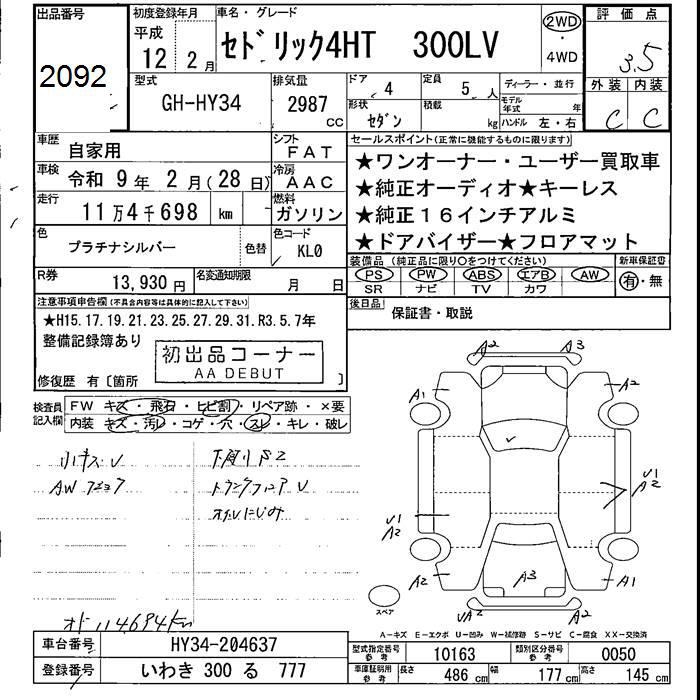 出品番号
2092
初度登録年月
平成
12 年 2 月
車名・グレード
セドリック4HT 300LV
2WD
・
4WD
評価点
3.5
外装 内装
C C
型式
GH-HY34
排気量
2987
CC
ドア
4
定員
5 人
形状
セダン
積載
kg
ディーラー・並行
モデル年式 年
ハンドル 左・右
車歴
自家用
シフト
FAT
車検
令和 9年 2月(28日)
冷房
AAC
走行
11万4千698 km
燃料
ガソリン
色
プラチナシルバー
色替
色コード
KL0
R券
13,930円
名変通知期限
月 日
セールスポイント(正常に機能するものに限ります)
★ワンオーナー・ユーザー買取車
★純正オーディオ★キーレス
★純正16インチアルミ
★ドアバイザー★フロアマット
装備品(純正品に限り○をつけてください)
PS PW ABS エアB AW
SR ナビ TV カワ
新車保証書
有・無
後日品
保証書・取説
注意事項申告欄(不具合内容等は具体的に記入して下さい)
★H15.17.19.21.23.25.27.29.31.R3.5.7年
整備記録簿あり
初出品コーナー
AA DEBUT
修復歴 有〔箇所 〕
検査員記入欄
FW キズ・飛石・ヒビ割・リペア跡・×要
内装 キズ・汚レ・コゲ・穴・スレ・キレ・破レ
小キズU
下廻りサビ
トランクフロアU
オイルにじみ
オド114694km
A2 A3
A1 A2
U1
A2
U1
A2
A2 A3 A1
UA2 A2
スペア
A-キズ E-エクボ U-凹み W-補修跡 S-サビ C-腐食 XX-交換済
車台番号
HY34-204637
登録番号
いわき 300 る 777
型式指定番号
参考
10163
類別区分番号
参考
0050
車庫証明用
参考
長さ 486 cm
幅 177 cm
高さ 145 cm